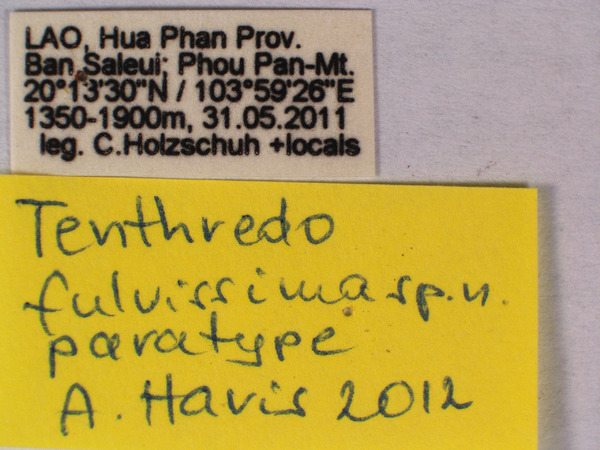 LAO, Hua Phan Prov.
Ban Saleui; Phou Pan-Mt.
20°13'30"N / 103°59'26"E
1350-1900m, 31.05.2011
leg. C.Holzschuh +locals
Tenthredo
fulvissima sp.n.
paratype
A. Haris 2012